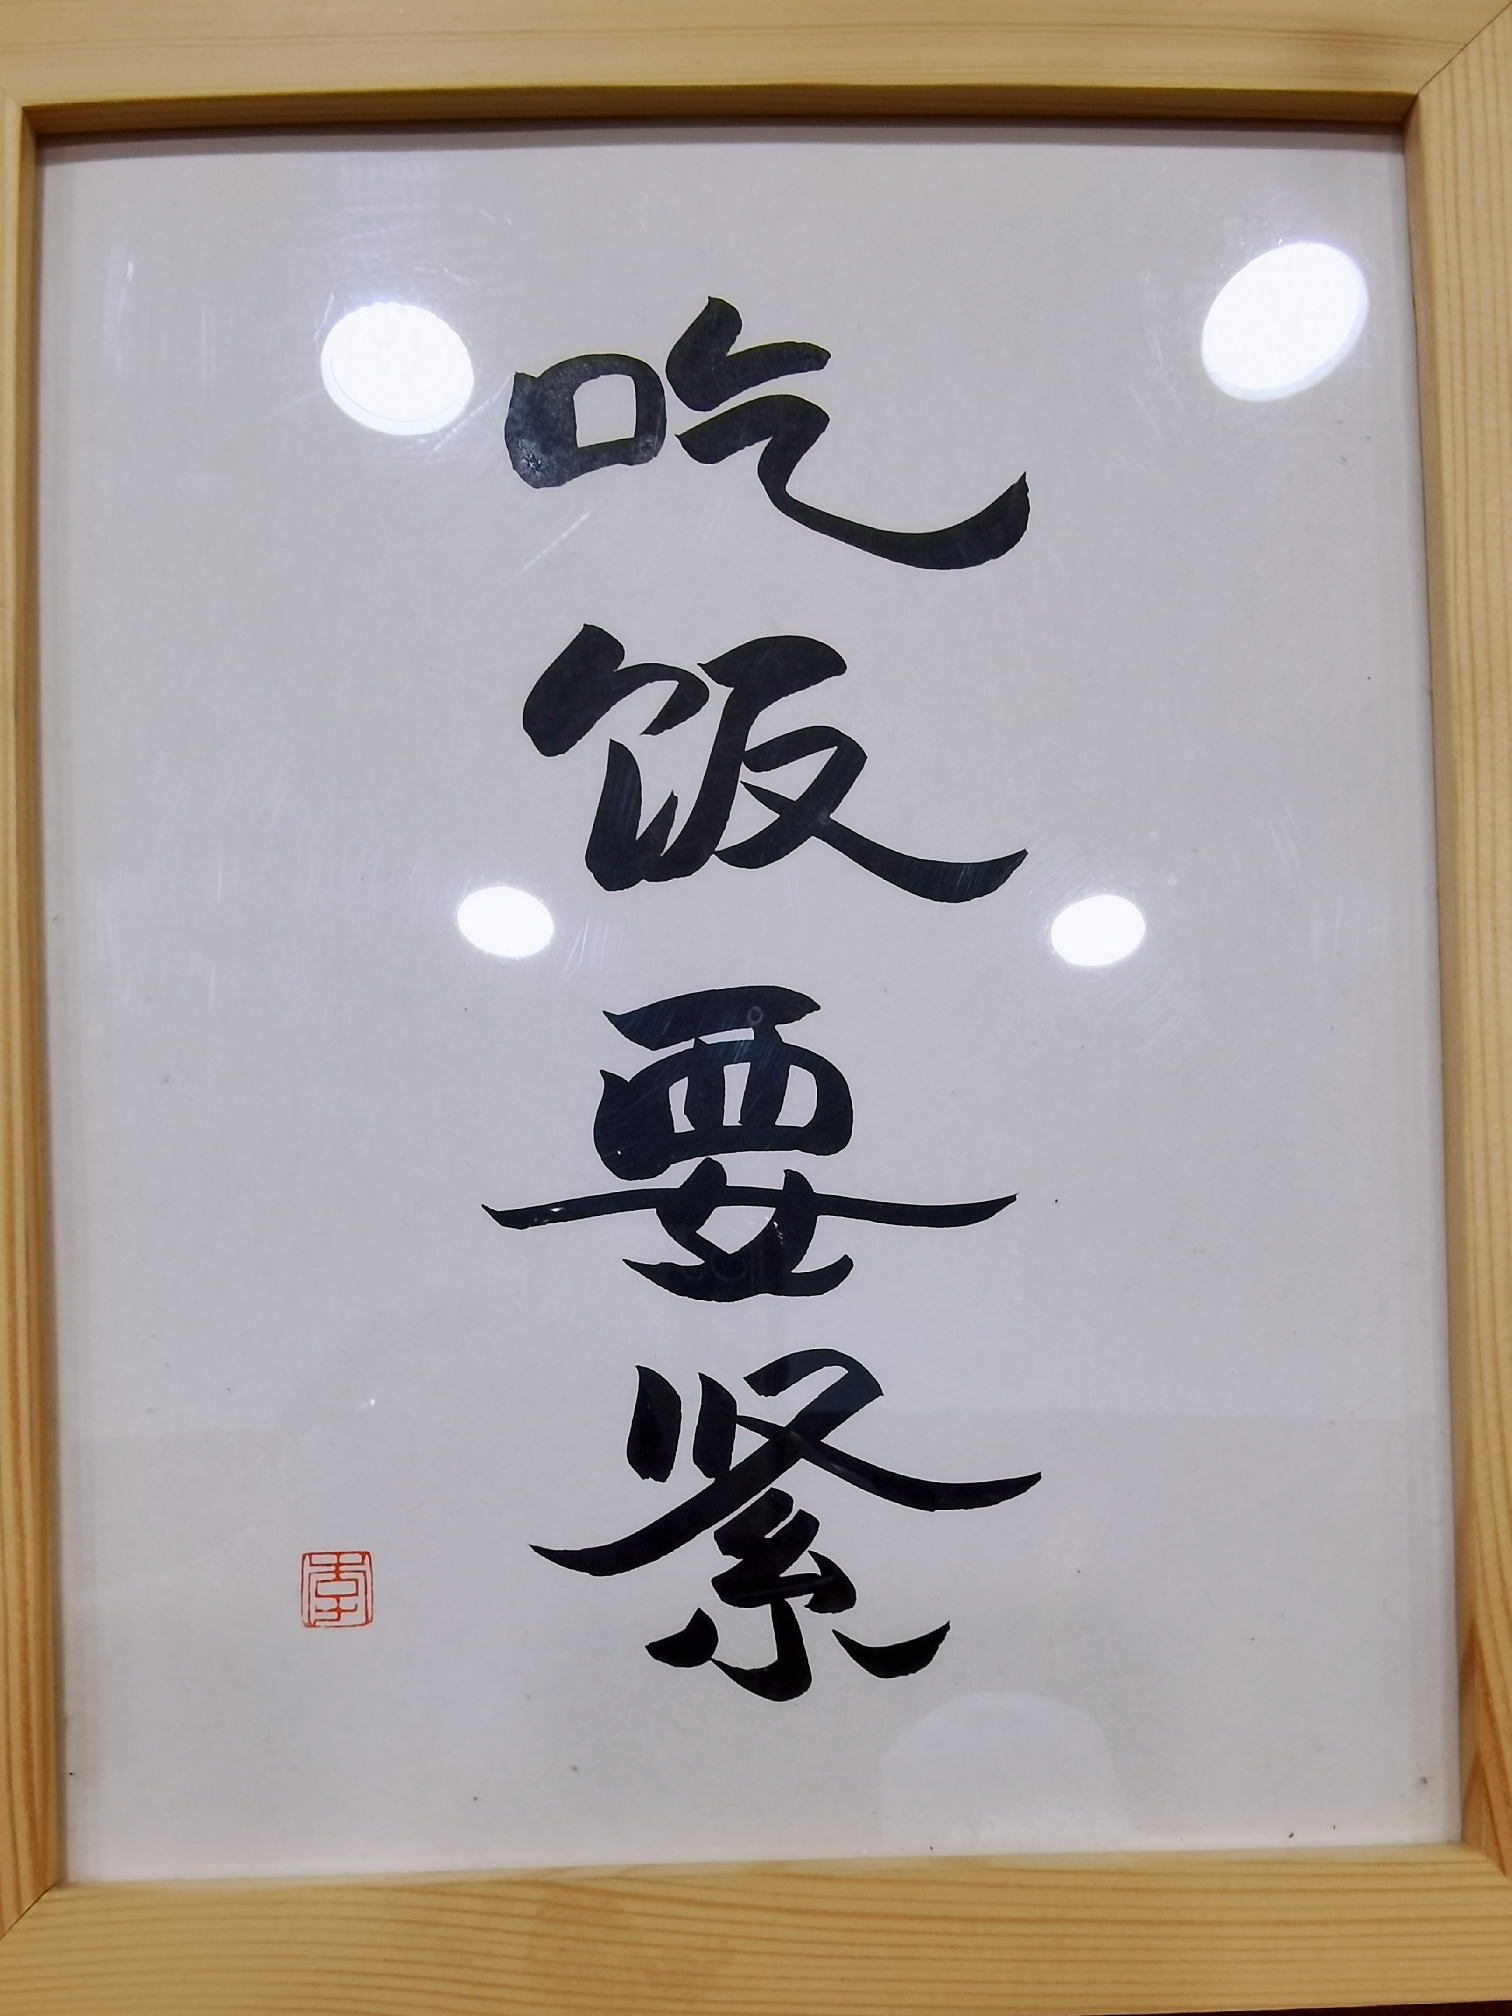 吃饭要紧
李